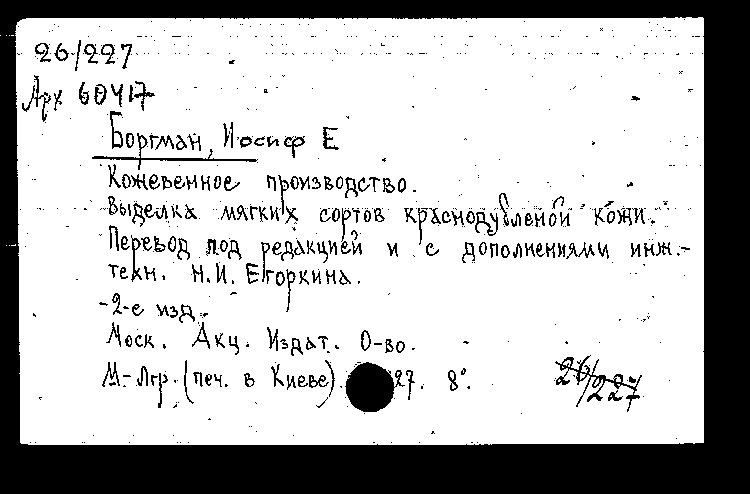 26/227
Арх 60417
Боргман, Иосиф Е
Кожевенное производство.
Выделка мягких сортов краснодубленой кожи.
Перевод под редакцией и с дополнениями инж.-
техн. Н.И. Егоркина.
-2-е изд.
Моск. Акц. Издат. О-во.
М-Лгр. (печ. в Киеве) 27. 8°.
26/227